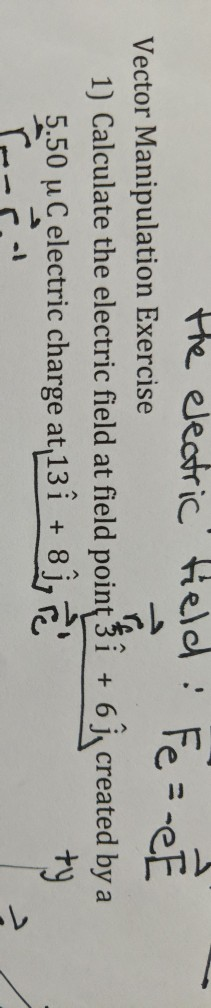 the electric field : F⃗e = -eE⃗
Vector Manipulation Exercise
1) Calculate the electric field at field point 3î + 6ĵ, created by a
5.50 μC electric charge at 13î + 8ĵ, r⃗c'
+y